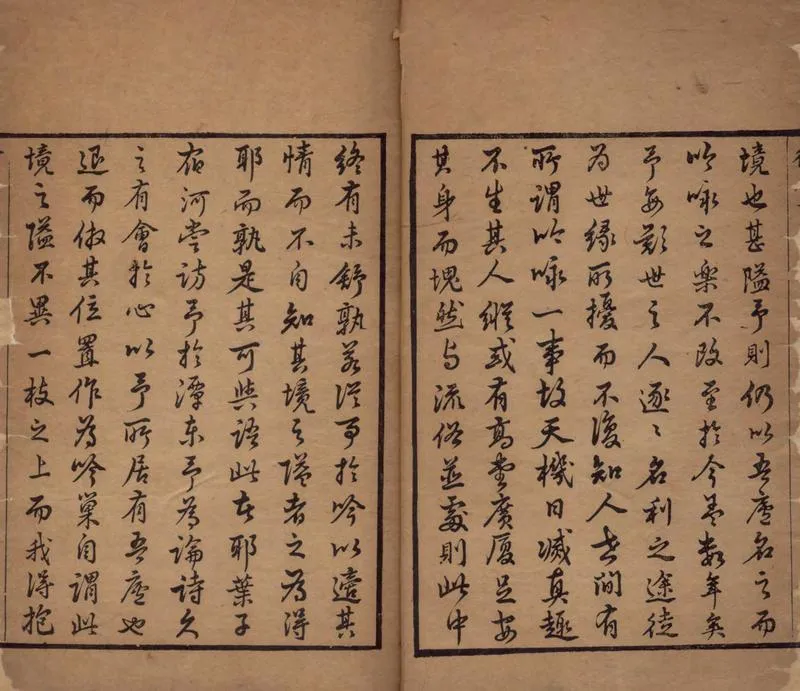 境也甚隘予則仍以吾廬名之而
吟咏之樂不改至於今盖数年矣
予每歎世之人逐〻名利之途徒
為世緣所擾而不復知人世間有
所謂吟咏一事故天機日滅真趣
不生其人縱或有高堂廣厦足安
其身而塊然与流俗並處則此中
終有未舒孰若從事於吟以適其
情而不自知其境之隘者之為得
耶而孰是其可與語此者耶葉子
宿河嘗訪予於潭東予為論詩久
之有會於心以予所居有吾廬也
退而倣其位置作為吟巢自謂此
境之隘不異一枝之上而我得抱